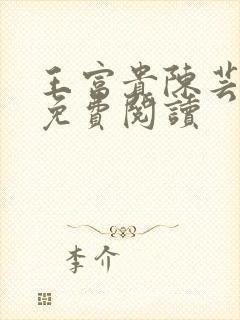 王富貴陳芸
免費閱讀
李介